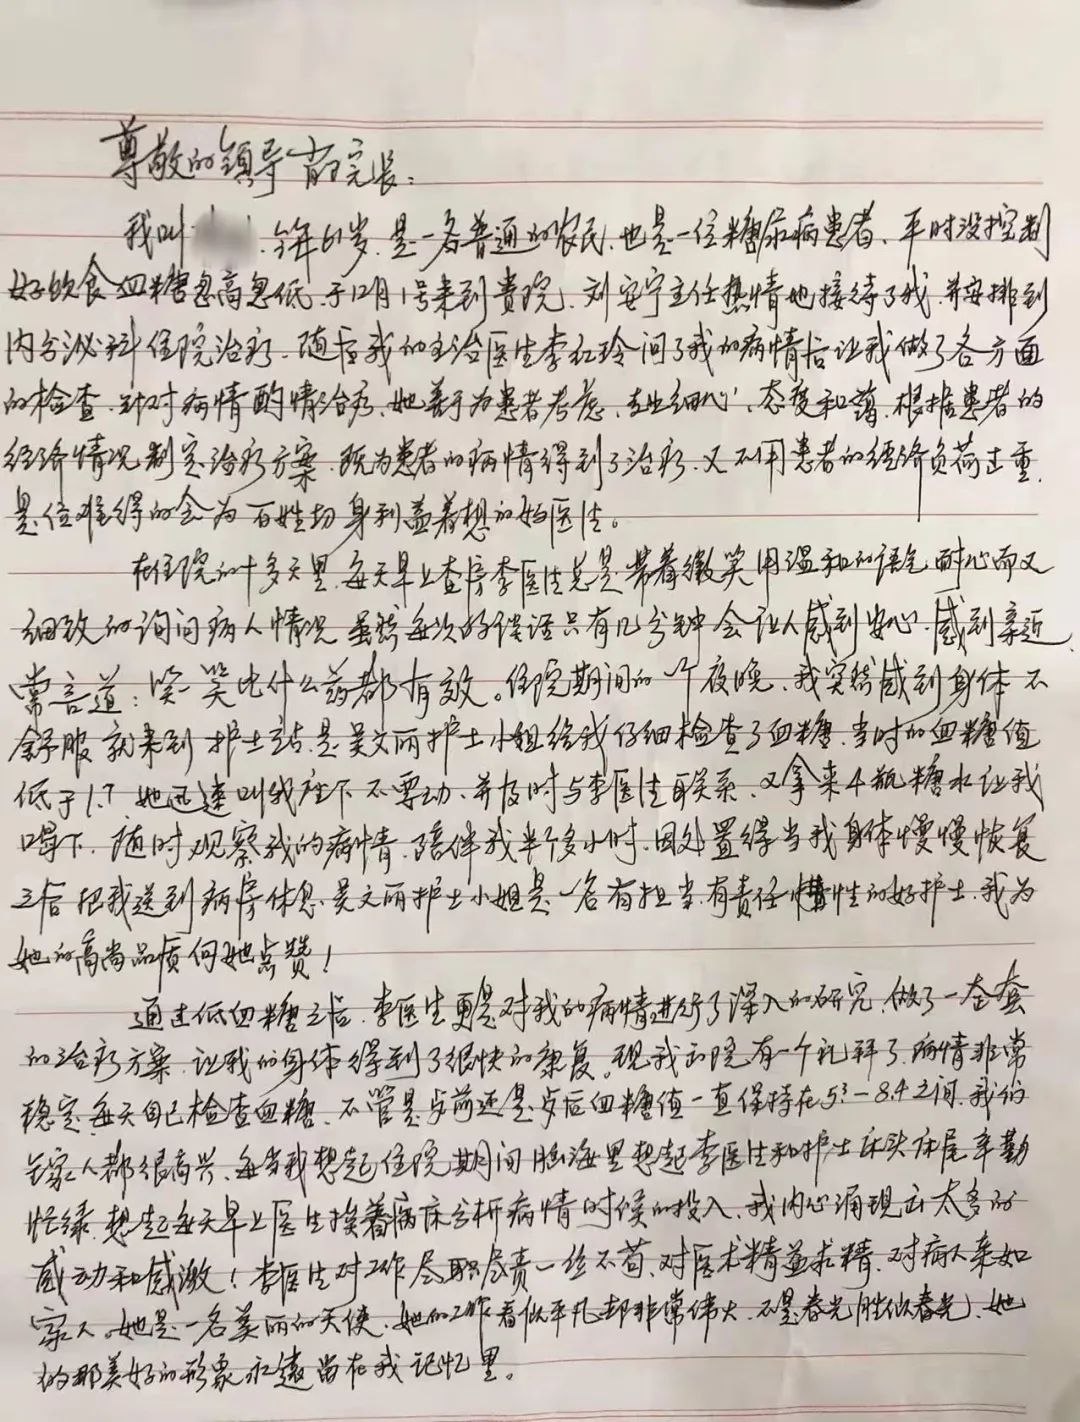 尊敬的领导 肖院长：
我叫 ，今年61岁，是一名普通的农民，也是一位糖尿病患者，平时没控制
好饮食血糖忽高忽低，于12月1号来到贵院，刘安宁主任热情地接待了我，并安排到
内分泌科住院治疗，随后我的主治医生李红玲问了我的病情后让我做了各方面
的检查，针对病情酌情治疗，她善于为患者考虑，专业细心、态度和蔼，根据患者的
经济情况制定治疗方案，既为患者的病情得到了治疗，又不用患者的经济负荷过重，
是位难得的会为百姓切身利益着想的好医生。
在住院的十多天里，每天早上查房李医生总是带着微笑用温和的语气耐心而又
细致的询问病人情况，虽然每次的谈话只有几分钟会让人感到安心，感到亲近，
常言道：笑一笑比什么药都有效。住院期间的一个夜晚，我突然感到身体不
舒服就来到护士站，是吴文丽护士小姐给我仔细检查了血糖，当时的血糖值
低于1.7，她迅速叫我座下不要动，并及时与李医生联系，又拿来4瓶糖水让我
喝下，随时观察我的病情，陪伴我半个多小时，因处置得当我身体慢慢恢复
之后把我送到病房休息，吴文丽护士小姐是一名有担当，有责任性的好护士，我为
她的高尚品质向她点赞！
通过低血糖之后，李医生更是对我的病情进行了深入的研究，做了一全套
的治疗方案，让我的身体得到了很快的康复。现我出院有一个礼拜了，病情非常
稳定，每天自己检查血糖，不管是步前还是步后血糖值一直保持在5.3－8.4之间，我的
家人都很高兴，每当我想起住院期间脑海里想起李医生和护士床头床尾辛勤
忙绿，想起每天早上医生挨着病床分析病情时候的投入，我内心涌现出太多的
感动和感激！李医生对工作尽职尽责一丝不苟，对医术精益求精，对病人亲如
家人，她是一名美丽的天使，她的工作看似平凡却非常伟大，不是春光胜似春光，她
的那美好的形象永远留在我记忆里。